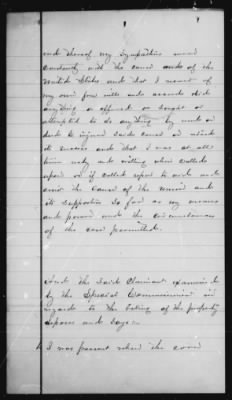 end thereof my sympathies were
constantly with the cause and of the
United States and that I never of
my own free will and accord did
anything or offered or sought or
attempted to do anything by word or
deed to injure said cause or retard
its success and that I was at all
times ready and willing when called
upon or if called upon to aid and
assist the cause of the Union and
its supporters so far as my means
and power and the circumstances
of the case permitted.
And the said Claimant examined
by the Special Commissioner in
regards to the taking of the property
deposes and says:
I was present when the corn